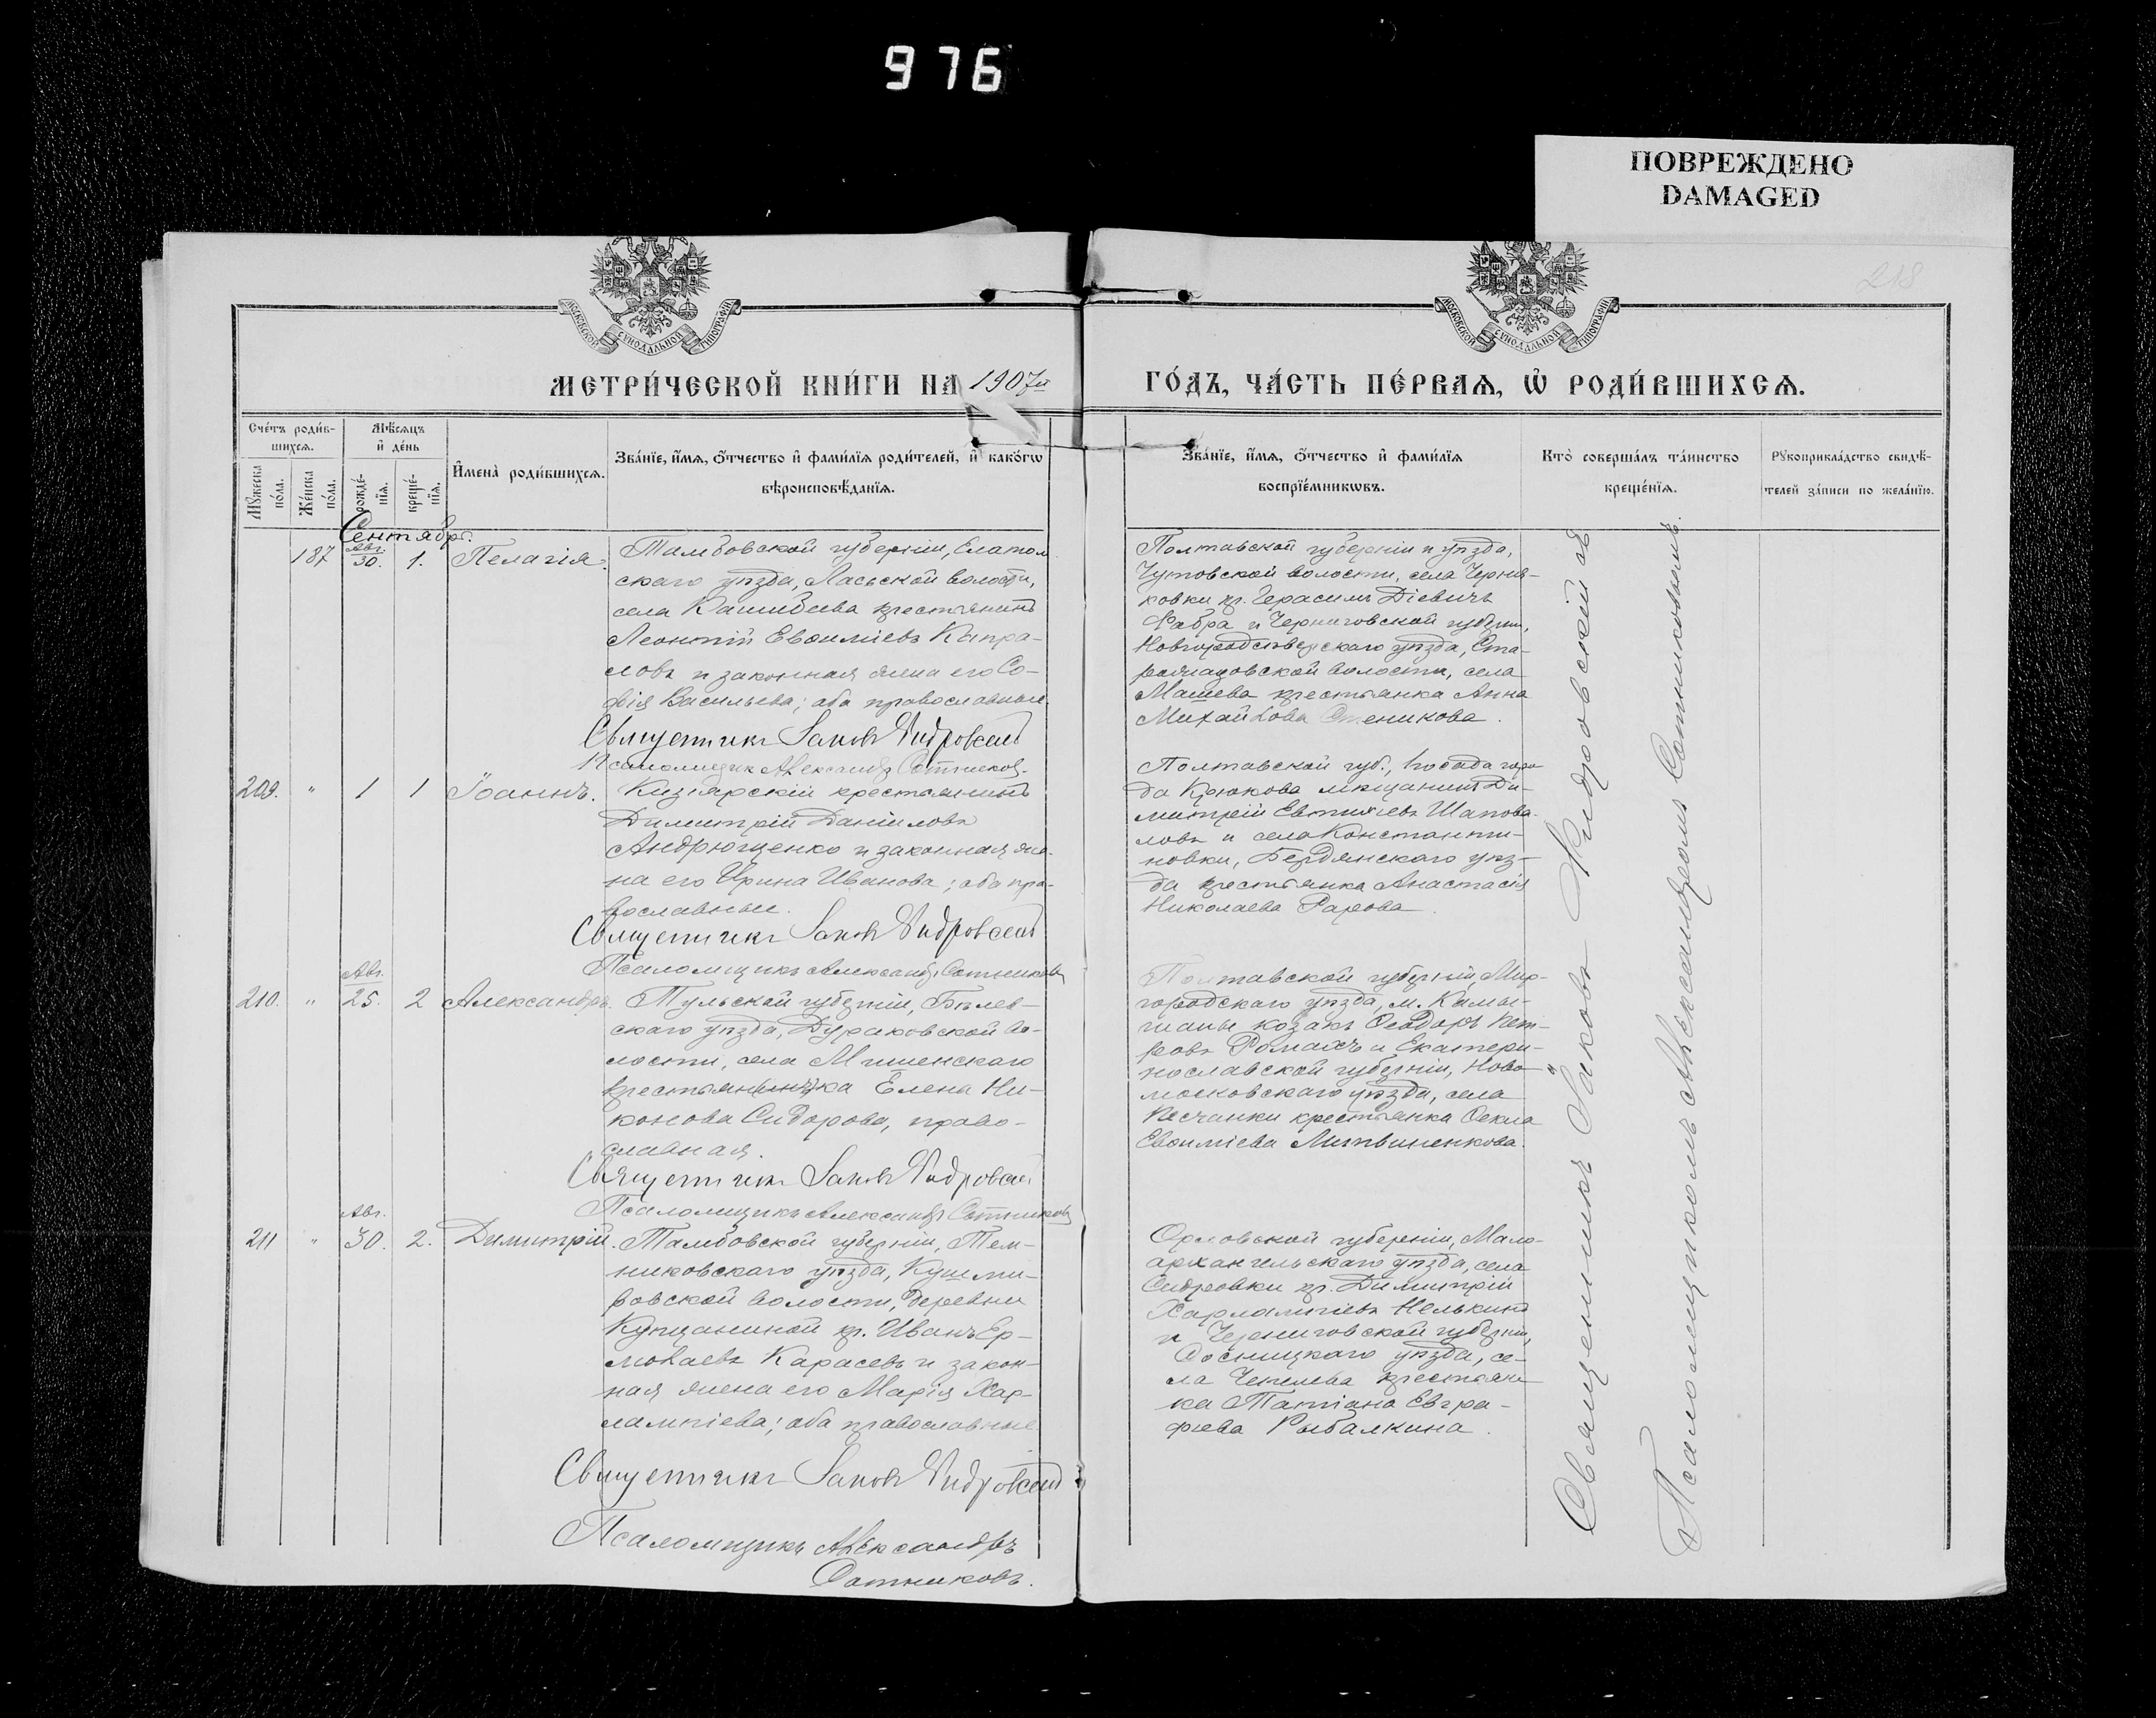 976
ПОВРЕЖДЕНО
DAMAGED
218
МОСКОВСКОЙ СѴНОДАЛЬНОЙ ТИПОГРАФІИ
МОСКОВСКОЙ СѴНОДАЛЬНОЙ ТИПОГРАФІИ
МЕТРИ́ЧЕСКОЙ КНИ́ГИ НА 1907й
ГО́ДЪ, ЧА́СТЬ ПЕ́РВАѦ, Ѡ҆ РОДИ́ВШИХСѦ.
Сче́тъ роди́в-
шихсѧ.
Мꙋ́жеска
по́ла.
Же́нска
по́ла.
Мѣ́сѧцъ
и҆ де́нь
рожде́-
нїѧ.
креще́-
нїѧ.
И҆мена̀ роди́вшихсѧ.
Зва́нїе, и҆́мѧ, ѻ҆́тчество и҆ фами́лїѧ роди́телей, и҆ како́гѡ
вѣроисповѣ́данїѧ.
Зва́нїе, и҆́мѧ, ѻ҆́тчество и҆ фами́лїѧ
воспрїе́мникѡвъ.
Кто̀ соверша́лъ та́инство
креще́нїѧ.
Рꙋкоприкла́дство свидѣ́-
телей за́писи по жела́нїю.
Сентябрь.
187 Авг. 30. 1. Пелагія.
Тамбовской губерніи, Елатом
скаго уѣзда, Ласьской волости,
села Кашибеева крестьянинъ
Леонтій Евѳиміевъ Капра-
ловъ и законная жена его Со-
фія Васильева; оба православные.
Священникъ Іаковъ Кидровскій
Псаломщикъ Александръ Сотниковъ.
Полтавской губерніи и уѣзда,
Чутовской волости, села Черня-
ковки кр. Герасимъ Діевичъ
Фабра и Черниговской губерніи,
Новгородсѣверскаго уѣзда, Ста-
села
Машева крестьянка Анна
Михайлова Стеникова.
209. " 1 1 Іоаннъ.
Кизіярскій крестьянинъ
Димитрій Даніиловъ
Андрющенко и законная же-
на его Ирина Иванова; оба пра-
вославные.
Священникъ Іаковъ Кидровскій
Псаломщикъ Александръ Сотниковъ
Полтавской губ., посада горо
да Крюкова мѣщанинъ Ди-
митрій Евтихіевъ Шапова-
ловъ и села Константи-
новки, Бердянскаго уѣз-
да крестьянка Анастасія
Николаева
210. " Авг. 25. 2 Александръ.
Тульской губерніи, Бѣлев-
скаго уѣзда, Дураковской во-
лости, села Мишенскаго
крестьян(инъ)ка Елена Ни-
конова Сидорова, право-
славная.
Священникъ Іаковъ Кидровскій
Псаломщикъ Александръ Сотниковъ
Полтавской губерніи, Мир-
городскаго уѣзда, м. Камы-
шанье козакъ Ѳеодоръ Пет-
ровъ Ромахъ и Екатери-
нославской губерніи, Ново-
московскаго уѣзда, села
Песчанки крестьянка Ѳекла
Евѳиміева Литвиненкова.
211 " Авг. 30. 2. Димитрій.
Тамбовской губерніи, Тем-
никовскаго уѣзда,
волости, деревни
кр. Иванъ Ер-
молаевъ Карасевъ и закон-
ная жена его Марія Хар-
лампіева; оба православные.
Священникъ Іаковъ Кидровскій
Псаломщикъ Александръ
Сотниковъ.
Орловской губерніи, Мало-
архангельскаго уѣзда, села
кр. Димитрій
Харлампіевъ Нелькинъ
и Черниговской губерніи,
Сосницкаго уѣзда, се-
ла крестьян-
ка Татіана Евгра-
фіева Рыбалкина.
Священникъ Іаковъ Кидровскій съ
Псаломщикомъ Александромъ Сотниковымъ.